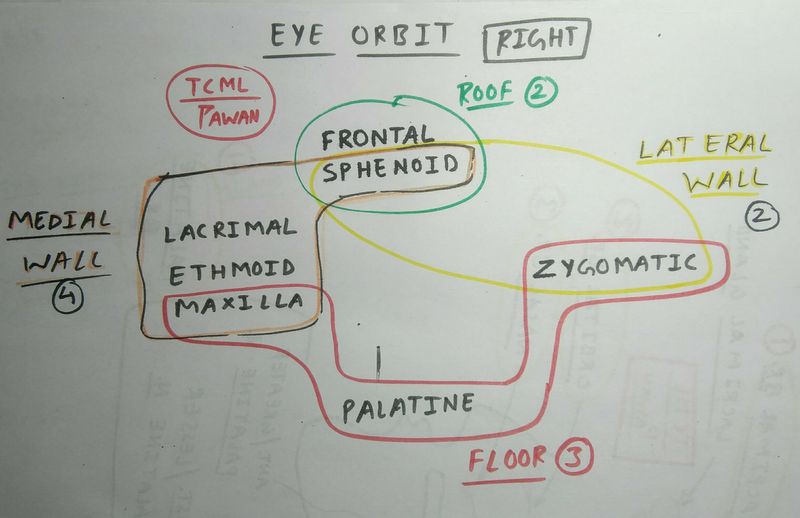 EYE ORBIT RIGHT
TCML
PAWAN
ROOF 2
FRONTAL
SPHENOID
LATERAL
WALL
2
MEDIAL
WALL
4
LACRIMAL
ETHMOID
MAXILLA
ZYGOMATIC
PALATINE
FLOOR 3